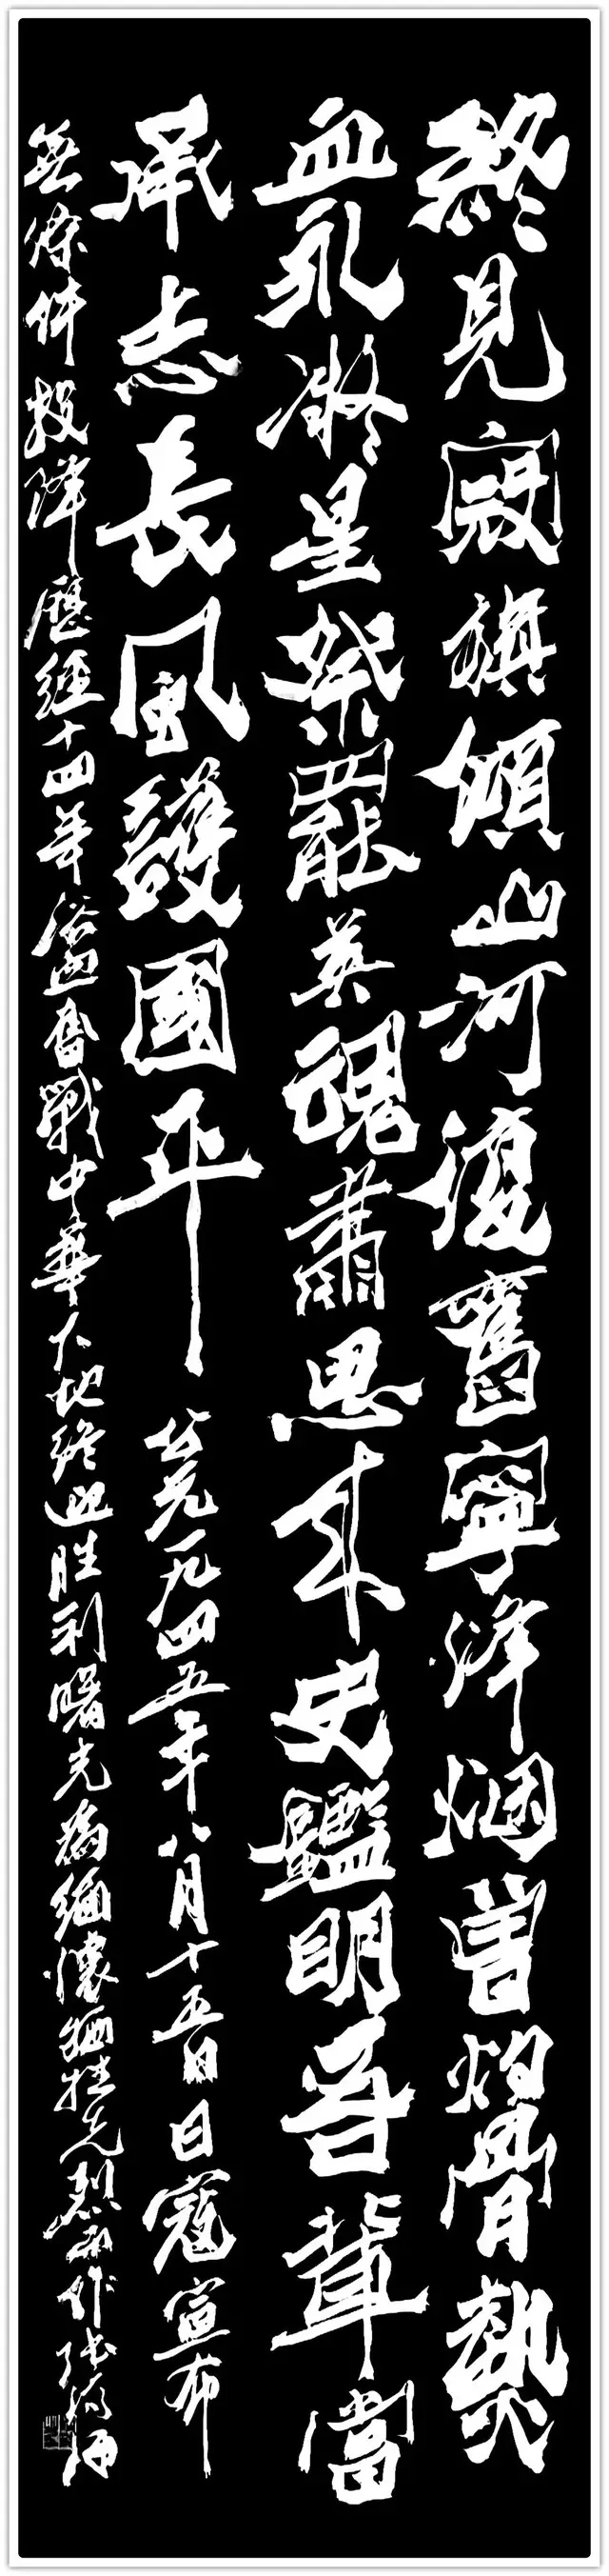 終見寇旗傾山河復舊寧烽烟曾灼骨熱
血永凝星祭罷英魂肅思來史鑑明吾輩當
承志長風護國平 公元一九四五年八月十五日日寇宣布
無條件投降歷經十四年浴血奮戰中華大地終迎胜利曙光為緬懷犧牲先烈而作张